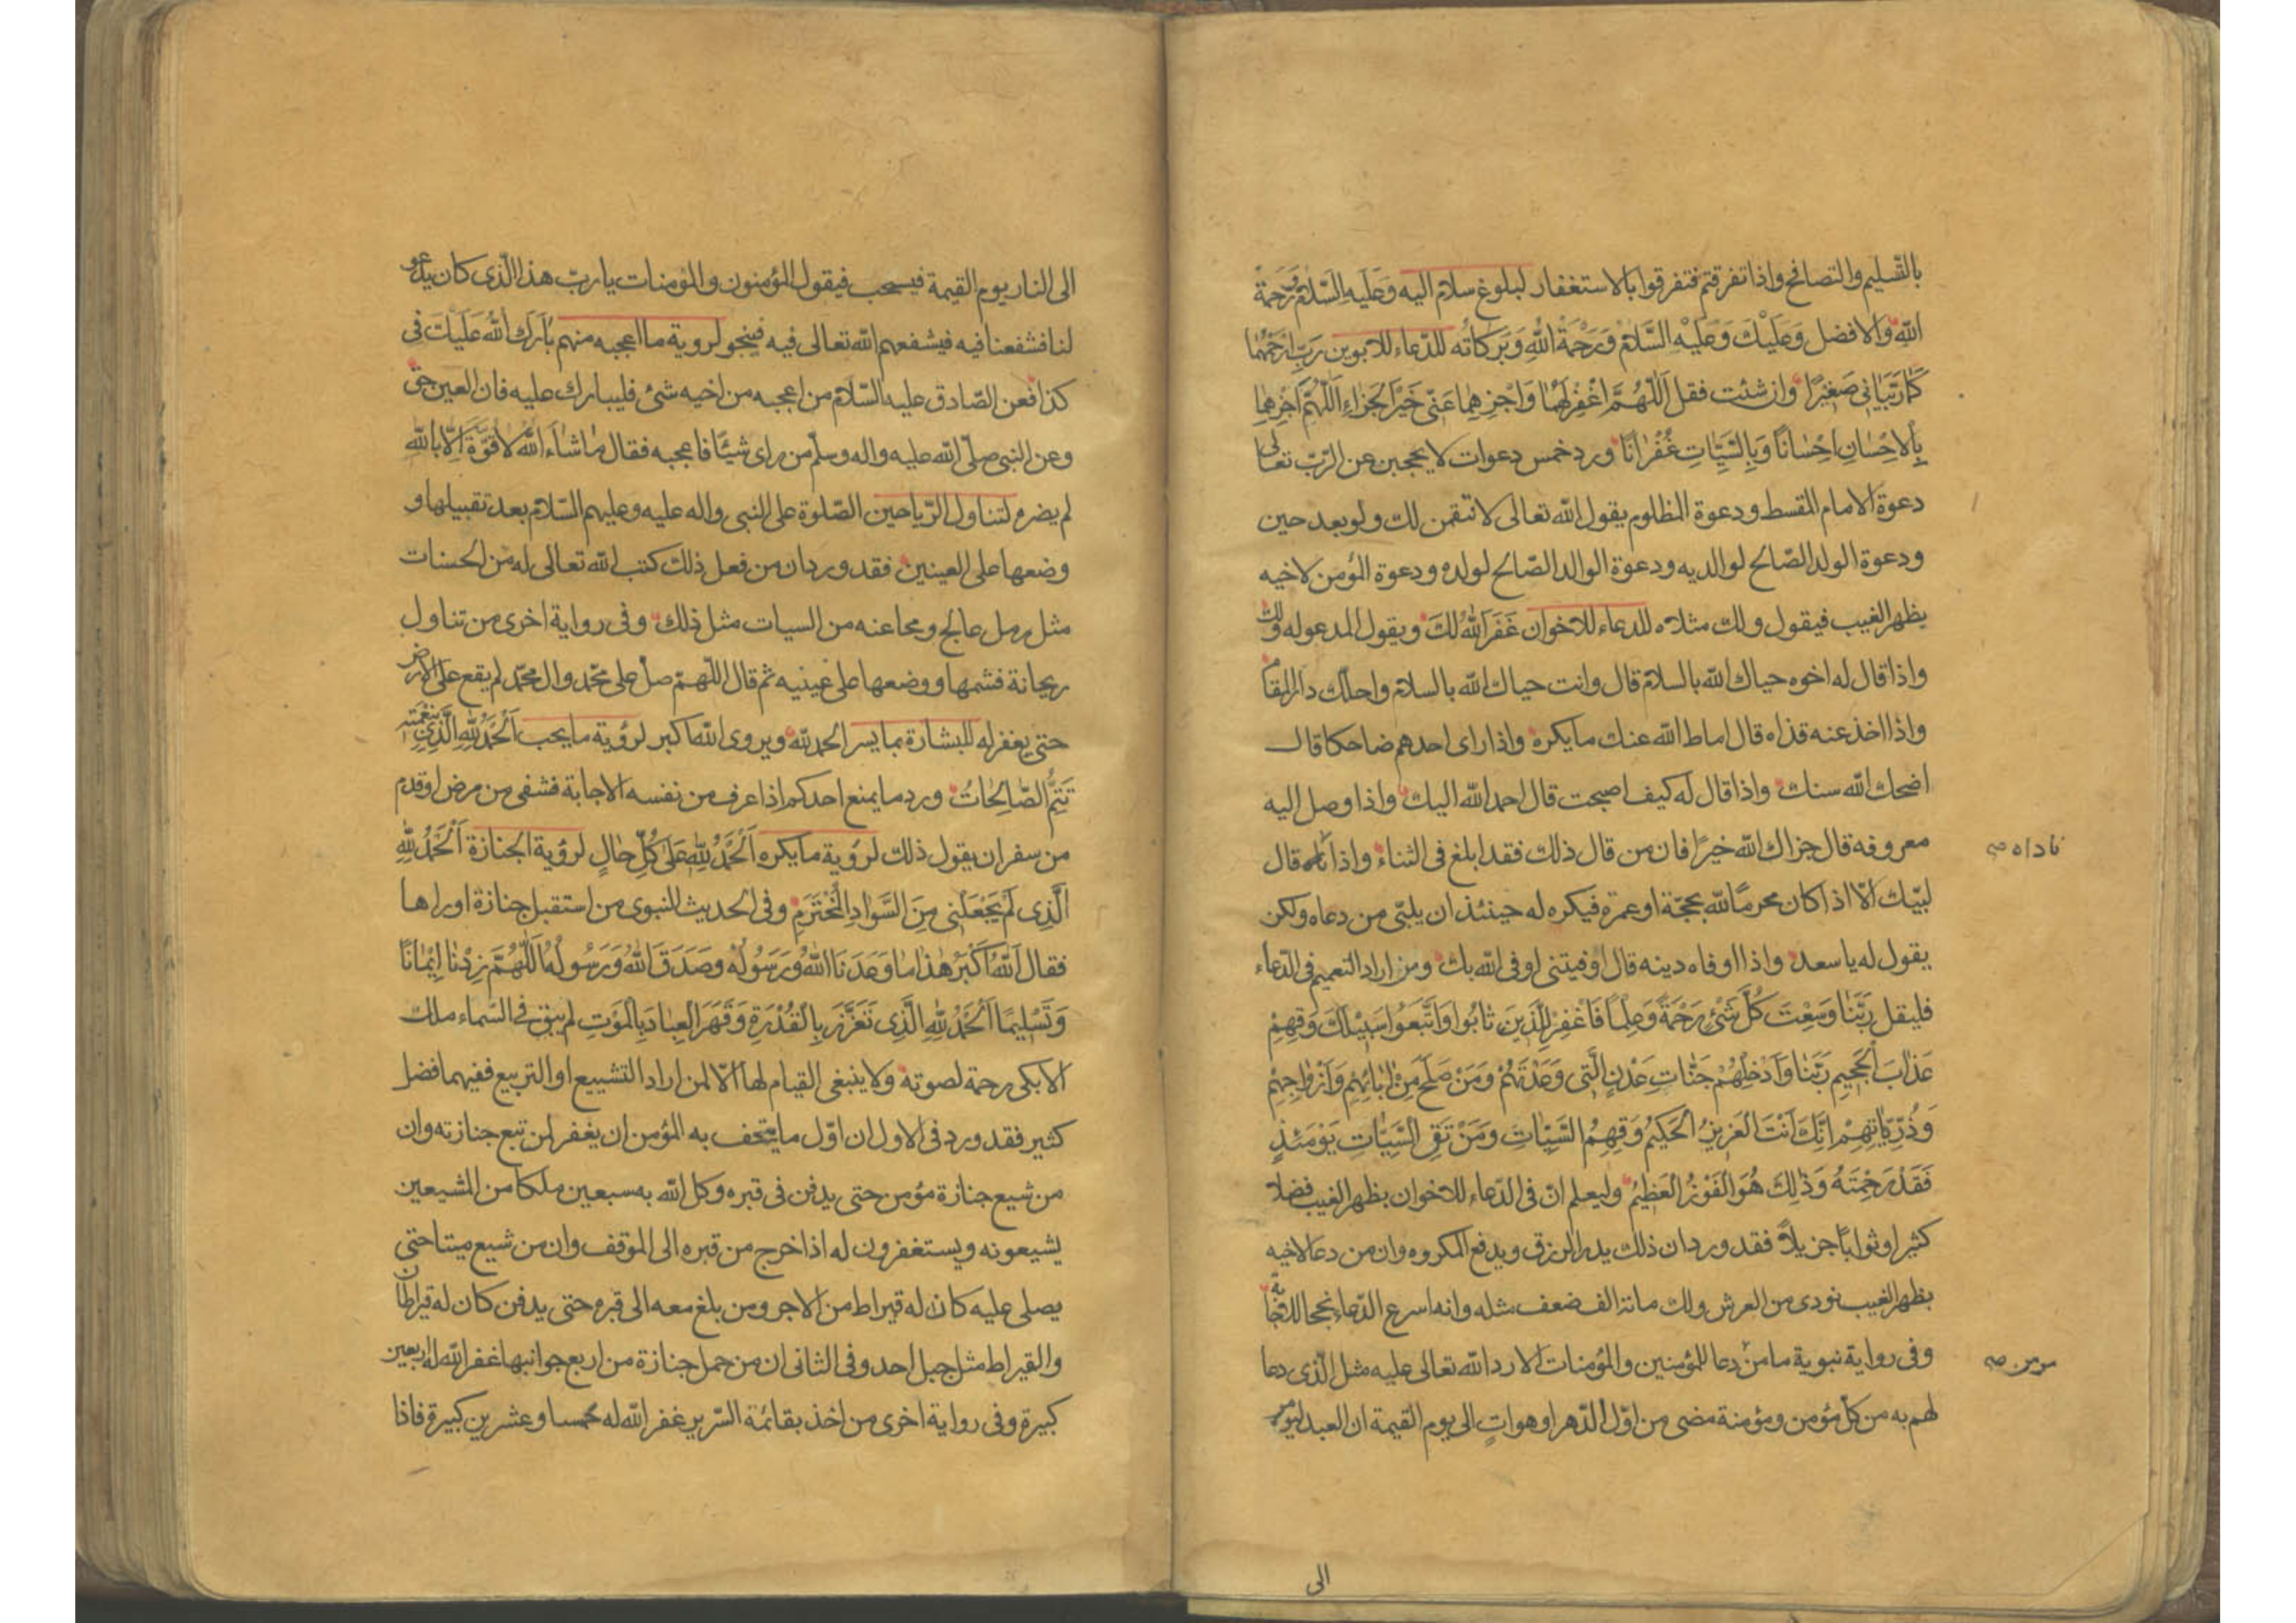 بالتّسليم والتصافح واذا تفرقتم فتفرقوا بالاستغفار لبلوغ سلام اليه وَعَلَيهِ السّلامُ وَرَحمَةُ
اللهِ والافضل وَعَلَيْكَ وَعَلَيْهِ السَّلامُ وَرَحْمَةُ اللهِ وَبَرَكاتُه للدّعاء للابوين رَبِّ ارْحَمْهُما
كَمٰا رَبَّيٰانِى صَغِيرًا وان شئت فقل اَللّٰهُمَّ اغْفِرْ لَهُمٰا وَاجْزِهِمٰا عَنّى خَيْرَ الجَزٰاءِ اَللّٰهُمَّ اجْزِهِمٰا
بِالاِحْسٰانِ اِحْسٰانًا وَبِالسَّيِّئٰاتِ غُفْرٰانًا ورد خمس دعوات لا يحجبن عن الرّب تعالى
دعوة الامام المقسط ودعوة المظلوم يقول الله تعالى لانتقمن لك ولو بعد حين
ودعوة الولد الصّالح لوالديه ودعوة الوالد الصّالح لولده ودعوة المؤمن لاخيه
بظهر الغيب فيقول ولك مثلاه للدعاء للاخوان غَفَرَ اللهُ لَكَ ويقول المدعو له ولك
واذا قال له اخوه حياك الله بالسلام قال وانت حياك الله بالسلام واحلّك دار المقام
واذا اخذ عنه قذاه قال اماط الله عنك ما يكره واذا راى احدهم ضاحكا قال
اضحك الله سنك واذا قال له كيف اصبحت قال احمد الله اليك واذا وصل اليه
معروفه قال جزاك الله خيرًا فان من قال ذلك فقد ابلغ فى الثناء واذا قال
ناداه صح
لبّيك الّا اذا كان محرمًا لله بحجّة او عمرة فيكره له حينئذ ان يلبّى من دعاه ولكن
يقول له يا سعد واذا اوفاه دينه قال اوفيتنى اوفى الله بك ومن اراد التعميم فى الدّعاء
فليقل رَبَّنٰا وَسِعْتَ كُلَّ شَىْءٍ رَحْمَةً وَعِلْمًا فَاغْفِرْ لِلَّذِينَ تٰابُوا وَاتَّبَعُوا سَبِيْلَكَ وَقِهِمْ
عَذٰابَ الْجَحِيمِ رَبَّنٰا وَاَدْخِلْهُمْ جَنّٰاتِ عَدْنٍ الَّتِى وَعَدْتَهُمْ وَمَنْ صَلَحَ مِنْ اٰبٰائِهِمْ وَاَزْوٰاجِهِمْ
وَذُرِّيّٰاتِهِمْ اِنَّكَ اَنْتَ العَزِيزُ الْحَكِيمُ وَقِهِمُ السَّيِّئٰاتِ وَمَنْ تَقِ السَّيِّئٰاتِ يَوْمَئِذٍ
فَقَدْ رَحِمْتَهُ وَذٰلِكَ هُوَ الْفَوْزُ الْعَظِيمُ وليعلم انّ فى الدّعاء للاخوان بظهر الغيب فضلا
كثيرا وثوابًا جزيلاً فقد ورد ان ذلك يدر الرزق ويدفع المكروه وان من دعا لاخيه
بظهر الغيب نودى من العرش ولك مائة الف ضعف مثله وانه اسرع الدّعاء نجحا للاجابة
وفى رواية نبوية ما من دعا للمؤمنين والمؤمنات الا رد الله تعالى عليه مثل الّذى دعا
لهم به من كلّ مؤمن ومؤمنة مضى من اوّل الدّهر او هو اتٍ الى يوم القيمة ان العبد ليؤمر
الى
الى النار يوم القيمة فيسحب فيقول المؤمنون والمؤمنات يا ربّ هذا الّذى كان يدعو
لنا فشفعنا فيه فيشفعهم الله تعالى فيه فينجو لروية ما اعجبه منهم بٰارَكَ اللهُ عَلَيْكَ فى
كذا فعن الصّادق عليه السّلام من اعجبه من اخيه شئ فليبارك عليه فان العين حق
وعن النبى صلّى الله عليه واله وسلّم من راى شيئًا فاعجبه فقال مٰا شٰاءَ اللهُ لا قُوَّةَ اِلّا بالله
لم يضره لتناول الرّياحين الصّلوة على النبى واله عليه وعليهم السّلام بعد تقبيلها و
وضعها على العينين فقد ورد ان من فعل ذلك كتب الله تعالى له من الحسنات
مثل رمل عالج ومحا عنه من السيات مثل ذلك وفى رواية اخرى من تناول
ريحانة فشمها ووضعها على عينيه ثم قال اللّهمّ صل على محمّد وال محمّد لم يقع على الارض
حتى يغفر له للبشارة بما يسر الحمد لله ويروى الله اكبر لرؤية ما يحب اَلْحَمْدُ لِلّٰهِ الَّذِى بِنِعْمَتِهِ
تَتِمُّ الصّٰالِحٰاتُ ورد ما يمنع احدكم اذا عرف من نفسه الاجابة فشفى من مرض او قدم
من سفر ان يقول ذلك لرؤية ما يكره اَلْحَمْدُ لِلّٰهِ عَلىٰ كُلِّ حٰالٍ لرؤية الجنازة اَلْحَمْدُ لِلّٰهِ
الَّذِى لَمْ يَجْعَلْنِى مِنَ السَّوٰادِ الْمُخْتَرَمِ وفى الحديث النبوى من استقبل جنازة او راها
فقال اَللهُ اَكْبَرُ هٰذٰا مٰا وَعَدَنَا اللهُ وَرَسُولُهُ وَصَدَقَ اللهُ وَرَسُولُهُ اَللّٰهُمَّ زِدْنٰا اِيْمٰانًا
وَتَسْلِيمًا اَلْحَمْدُ لِلّٰهِ الَّذِى تَعَزَّزَ بِالْقُدْرَةِ وَقَهَرَ العِبٰادَ بِالْمَوْتِ لم يبق فى السّماء ملك
الا بكى رحمة لصوته ولا ينبغى القيام لها الّا لمن اراد التشييع او التربيع ففيهما فضل
كثير فقد ورد فى الاول ان اوّل ما يتحف به المؤمن ان يغفر لمن تبع جنازته وان
من شيع جنازة مؤمن حتى يدفن فى قبره وكل الله به سبعين ملكا من المشيعين
يشيعونه ويستغفرون له اذا خرج من قبره الى الموقف وان من شيع ميتا حتى
يصلى عليه كان له قيراط من الاجر ومن بلغ معه الى قبره حتى يدفن كان له قيراطان
والقيراط مثل جبل احد وفى الثانى ان من حمل جنازة من اربع جوانبها غفر الله له اربعين
كبيرة وفى رواية اخرى من اخذ بقائمة السّرير غفر الله له خمسا وعشرين كبيرة فاذا